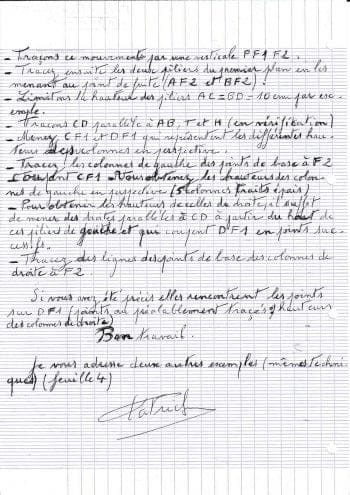 - Traçons ce mouvement par une verticale FF1F2.
- Tracez ensuite les deux piliers du premier plan en les
menant au point de fuite (AF2 et BF2).
- Limitons la hauteur des piliers AC=BD=10cm par ex-
emple.
- Traçons CD parallèle à AB, T et H (en vérification)
- Menez CF1 et DF1 qui représentent les différentes hau-
teurs des colonnes en perspective.
- Tracez les colonnes de gauche des points de base à F2
coupant CF1 - Vous obtenez les hauteurs des colon-
nes de gauche en perspective (5 colonnes traits épais)
- Pour obtenir les hauteurs de celles de droite, il suffit
de mener des droites parallèles à CD à partir du haut de
ces piliers de gauche et qui coupent DF1 en points suc-
cessifs.
- Tracez des lignes des points de base des colonnes de
droite à F2.
Si vous avez été précis elles rencontrent les points
sur DF1 (points au préalablement tracés) hauteurs
des colonnes de droite)
Bon travail.
Je vous adresse deux autres exemples (mêmes techni-
ques) (feuille 4)
Patrick